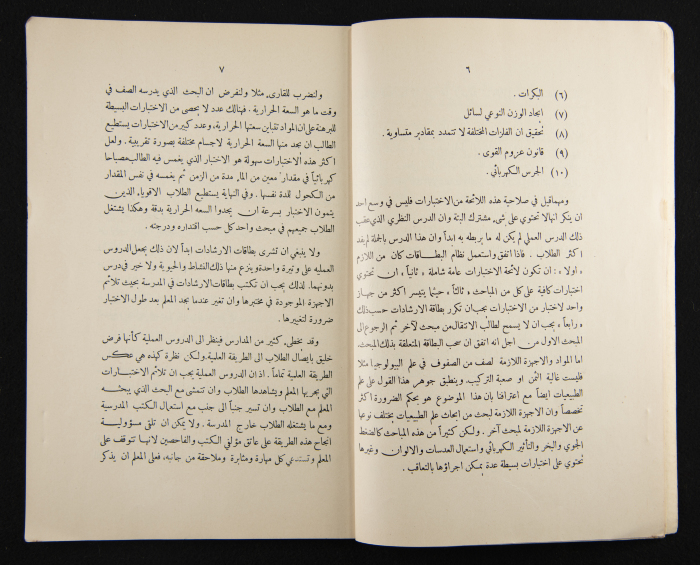 ٦
(٦) البكرات .
(٧) ايجاد الوزن النوعي لسائل
(٨) تحقيق ان الفلزات المختلفة لا تتمدد بمقادير متساوية .
(٩) قانون عزوم القوى .
(١٠) الجرس الكهربائي .
ومهما قيل في صلاحية هذه اللائحة من الاختبارات فليس في وسع احد
ان ينكر انها لا تحتوي على شيء مشترك البتة وان الدرس النظري الذي عقب
ذلك الدرس العملي لم يكن له ما يربطه به ابداً وان هذا الدرس بالجملة لم يفد
اكثر الطلاب . فاذا اتفق واستعمل نظام البطاقات كان من اللازم
« اولا » : ان تكون لائحة الاختبارات عامة شاملة ، ثانياً ، ان تحتوي
اختبارات كافية على كل من المباحث ، ثالثاً ، حيثما يتيسر اكثر من جهاز
واحد لاختبار من الاختبارات يجب ان تكرر بطاقة الارشادات حسب ذلك
« رابعاً » يجب ان لا يسمح لطالب الانتقال من مبحث لآخر ثم الرجوع الى
المبحث الاول من اجل انه اتفق ان سحب البطاقة المتعلقة بذلك المبحث.
اما المواد والاجهزة اللازمة لصف من الصفوف في علم البيولوجيا مثلا
فليست غالية الثمن او صعبة التركيب. وينطبق جوهر هذا القول على علم
الطبيعيات ايضاً مع اعترافنا بان هذا الموضوع هو بحكم الضرورة اكثر
تخصصاً وان الاجهزة اللازمة لبحث من ابحاث علم الطبيعيات يختلف نوعها
عن الاجهزة اللازمة لمبحث آخر . ولكن كثيراً من هذه المباحث كالضغط
الجوي والبخر والتأثير الكهربائي واستعمال العدسات والالوان وغيرها
تحتوي على اختبارات بسيطة عدة يمكن اجراؤها بالتعاقب .
٧
ولنضرب للقارىء مثلا ولنفرض ان البحث الذي يدرسه الصف في
وقت ما هو السعة الحرارية . فهنالك عدد لا يحصى من الاختبارات البسيطة
للبرهنة على ان المواد تتباين سعتها الحرارية، وعدد كبير من الاختبارات يستطيع
الطالب ان يجد منها السعة الحرارية لاجسام مختلفة بصورة تقريبية . ولعل
اكثر هذه الاختبارات سهولة هو الاختبار الذي يغمس فيه الطالب مصباحا
كهربائياً في مقدار معين من الماء مدة من الزمن ثم يغمسه في نفس المقدار
من الكحول للمدة نفسها . وفي النهاية يستطيع الطلاب الاقوياء الذين
يتمون الاختبار بسرعة ان يجدوا السعه الحرارية بدقة وهكذا يشتغل
الطلاب جميعهم في مبحث واحد كل حسب اقتداره ودرجته .
ولا ينبغي ان تشرى بطاقات الارشادات ابداً لان ذلك يجعل الدروس
العمليه على وتيرة واحدة وينزع منها ذلك النشاط والحيوية ولا خير في درس
بدونهما. لذلك يجب ان تكتب بطاقات الارشادات في المدرسة بحيث تلائم
الاجهزة الموجودة في مختبرها وان تغير عندما يجد المعلم بعد طول الاختبار
ضرورة لتغييرها .
وقد يخطىء كثير من المدارس فينظر الى الدروس العملية كأنها فرض
خليق بايصال الطلاب الى الطريقة العلمية ولكن نظرة كهذه هي عكس
الطريقة العلمية تماماً . اذ ان الدروس العملية يجب ان تلائم الاختبارات
التي يجريها المعلم ويشاهدها الطلاب وان تتمشى مع البحث الذي يبحثه
المعلم مع الطلاب وان تسير جنباً الى جنب مع استعمال الكتب المدرسية
ومع ما يشتغله الطلاب خارج المدرسة . ولا يمكن ان تلقى مسؤولية
انجاح هذه الطريقة على عاتق مؤلفي الكتب والفاحصين لانها تتوقف على
المعلم وتستدعي كل مهارة ومثابرة وملاحقة من جانبه. فعلى المعلم ان يذكر